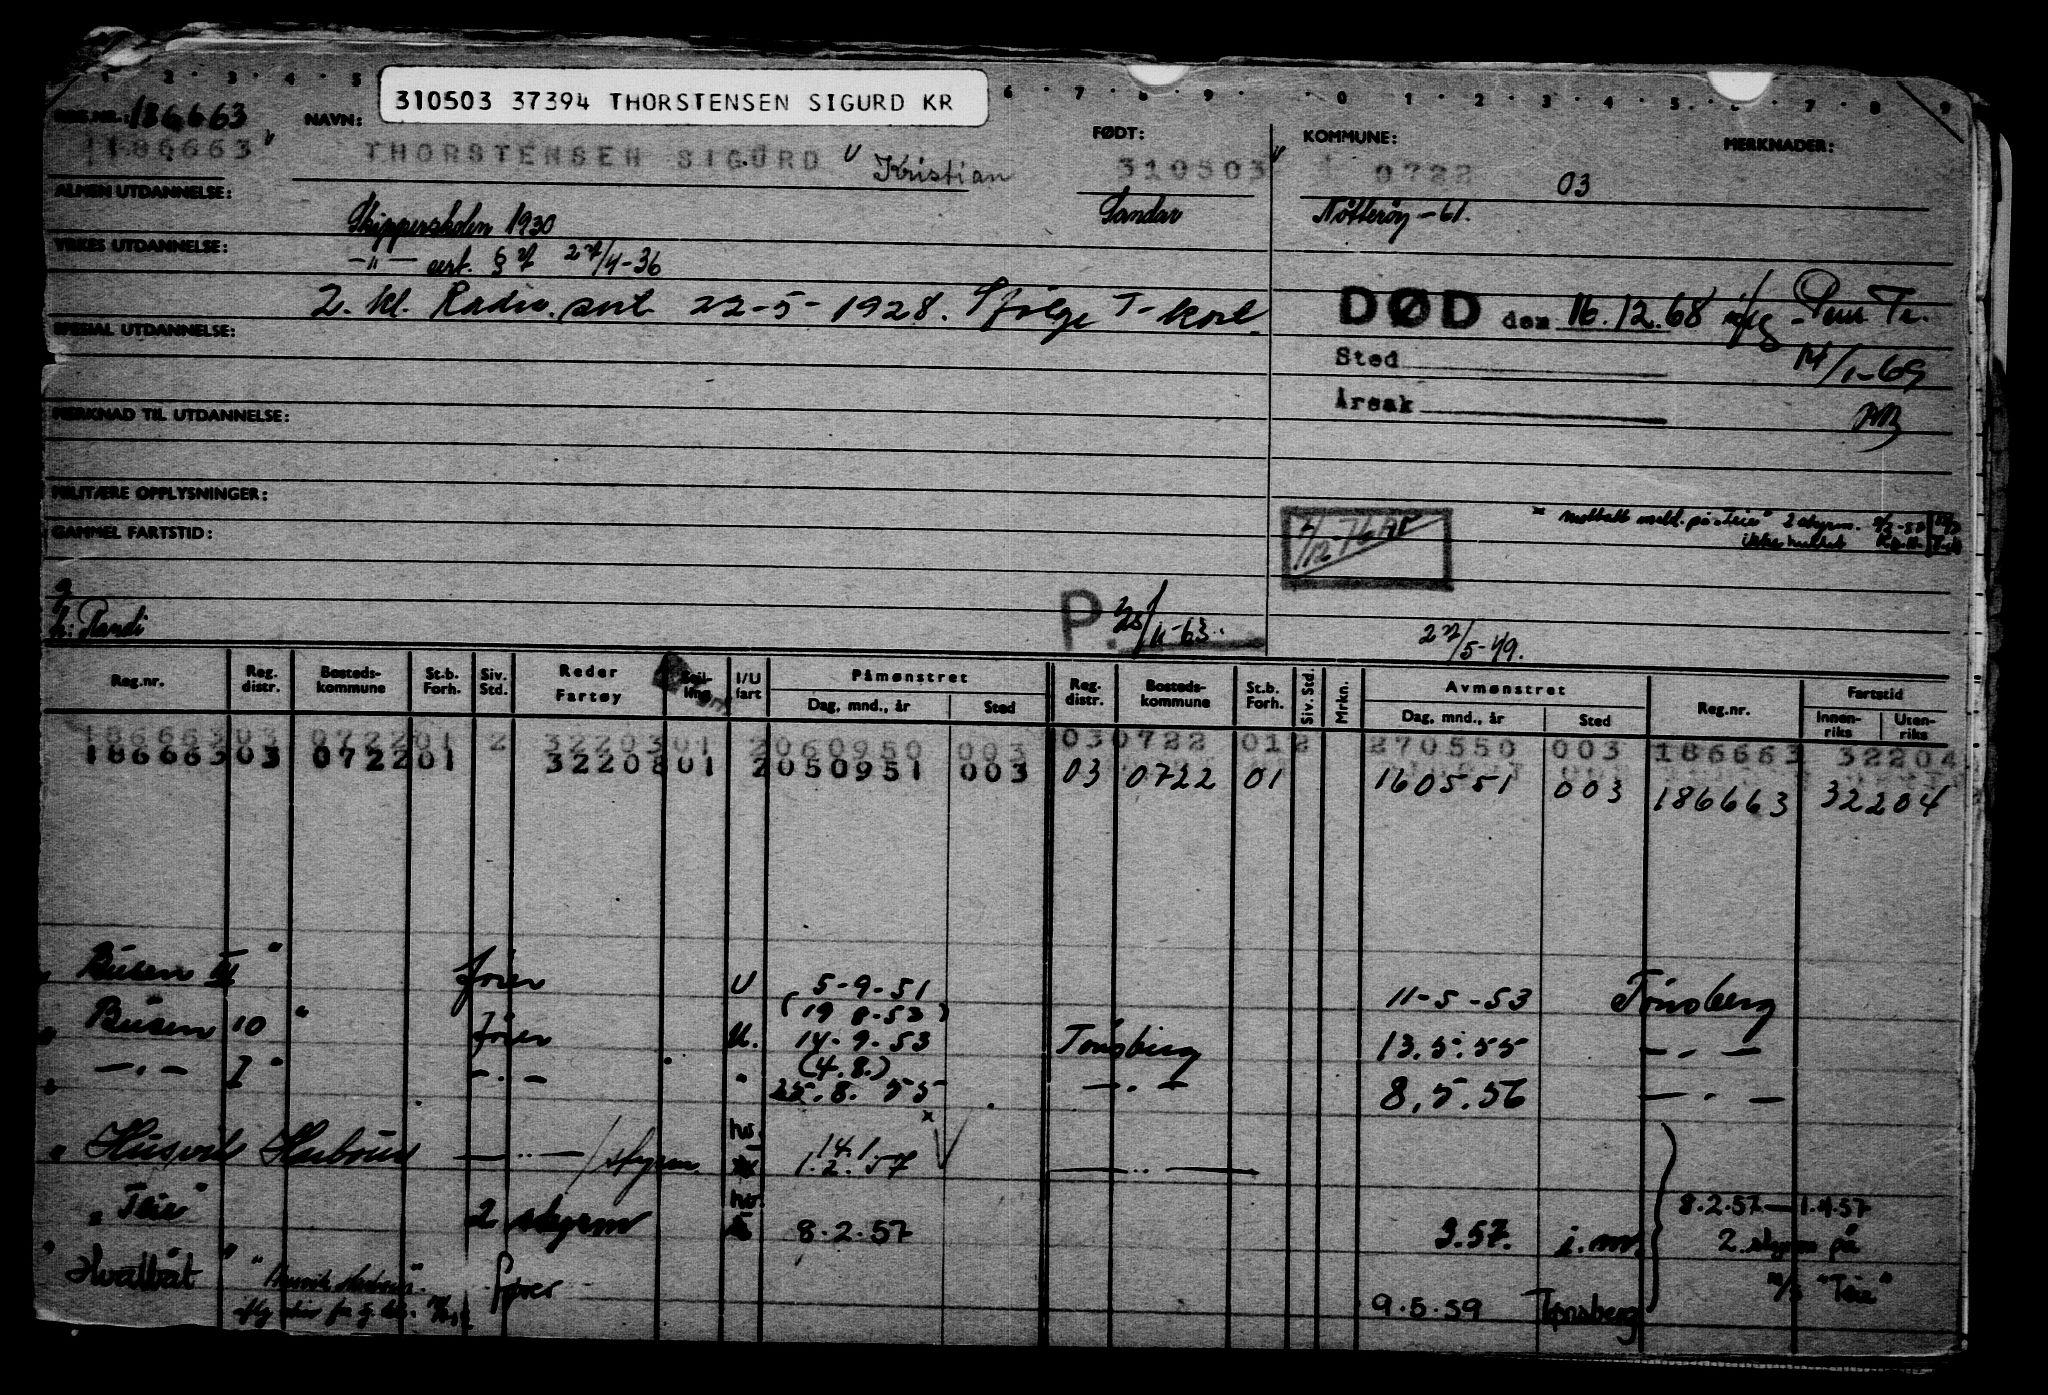 310503 37394 THORSTENSEN SIGURD KR
REG.NR.: 186663
NAVN:
FØDT:
KOMMUNE:
MERKNADER:
186663
THORSTENSEN SIGURD Kristian
310503
0722
03
ALMEN UTDANNELSE:
Skipperskolen 1930
Sandar
Nøtterøy - 61.
YRKES UTDANNELSE:
-"- sert. § 27/4-36
2. kl. Radio. sert. 22-5-1928. Ifølge T-kort.
DØD den 16.12.68
SPESIAL UTDANNELSE:
Sted
14/1-69
Årsak
MERKNAD TIL UTDANNELSE:
MILITÆRE OPPLYSNINGER:
mottatt meld. på "Teie" 2 styrm.
GAMMEL FARTSTID:
ikke hullet
h: Randi
P. 23/11-63.
27/5-49.
Reg.nr. Reg. distr. Bosteds-kommune St.b. Forh. Siv. Std. Reder Fartøy I/U fart Påmønstret Dag, mnd., år Sted Reg. distr. Bosteds-kommune St.b. Forh. Siv. Std. Mrkn. Avmønstret Dag, mnd., år Sted Reg.nr. Fartstid Innen-riks Uten-riks
186663 03 0722 01 2 32203 01 2 060950 003 03 0722 01 2 270550 003 186663 32204
186663 03 0722 01 32203 01 2 050951 003 03 0722 01 160551 003 186663 32204
Busen III" U 5-9-51 11-5-53 Tönsberg
(19 8-53)
Busen 10" U. 14-9-53 Tönsberg 13.5.55 -.-
(4.8.)
-.- I" -.- " 25.8.55 -.- 8.5.56 -.-
14.1.
-"- / styrm. hv. 1.2.57 -"-
"Teie" 2 styrm hv. 8.2.57 3.57. i.m. 8.2.57 - 1.4.57
2. styrm på
m/s "Teie"
"Hvalbåt" 9.5.59 Tønsberg